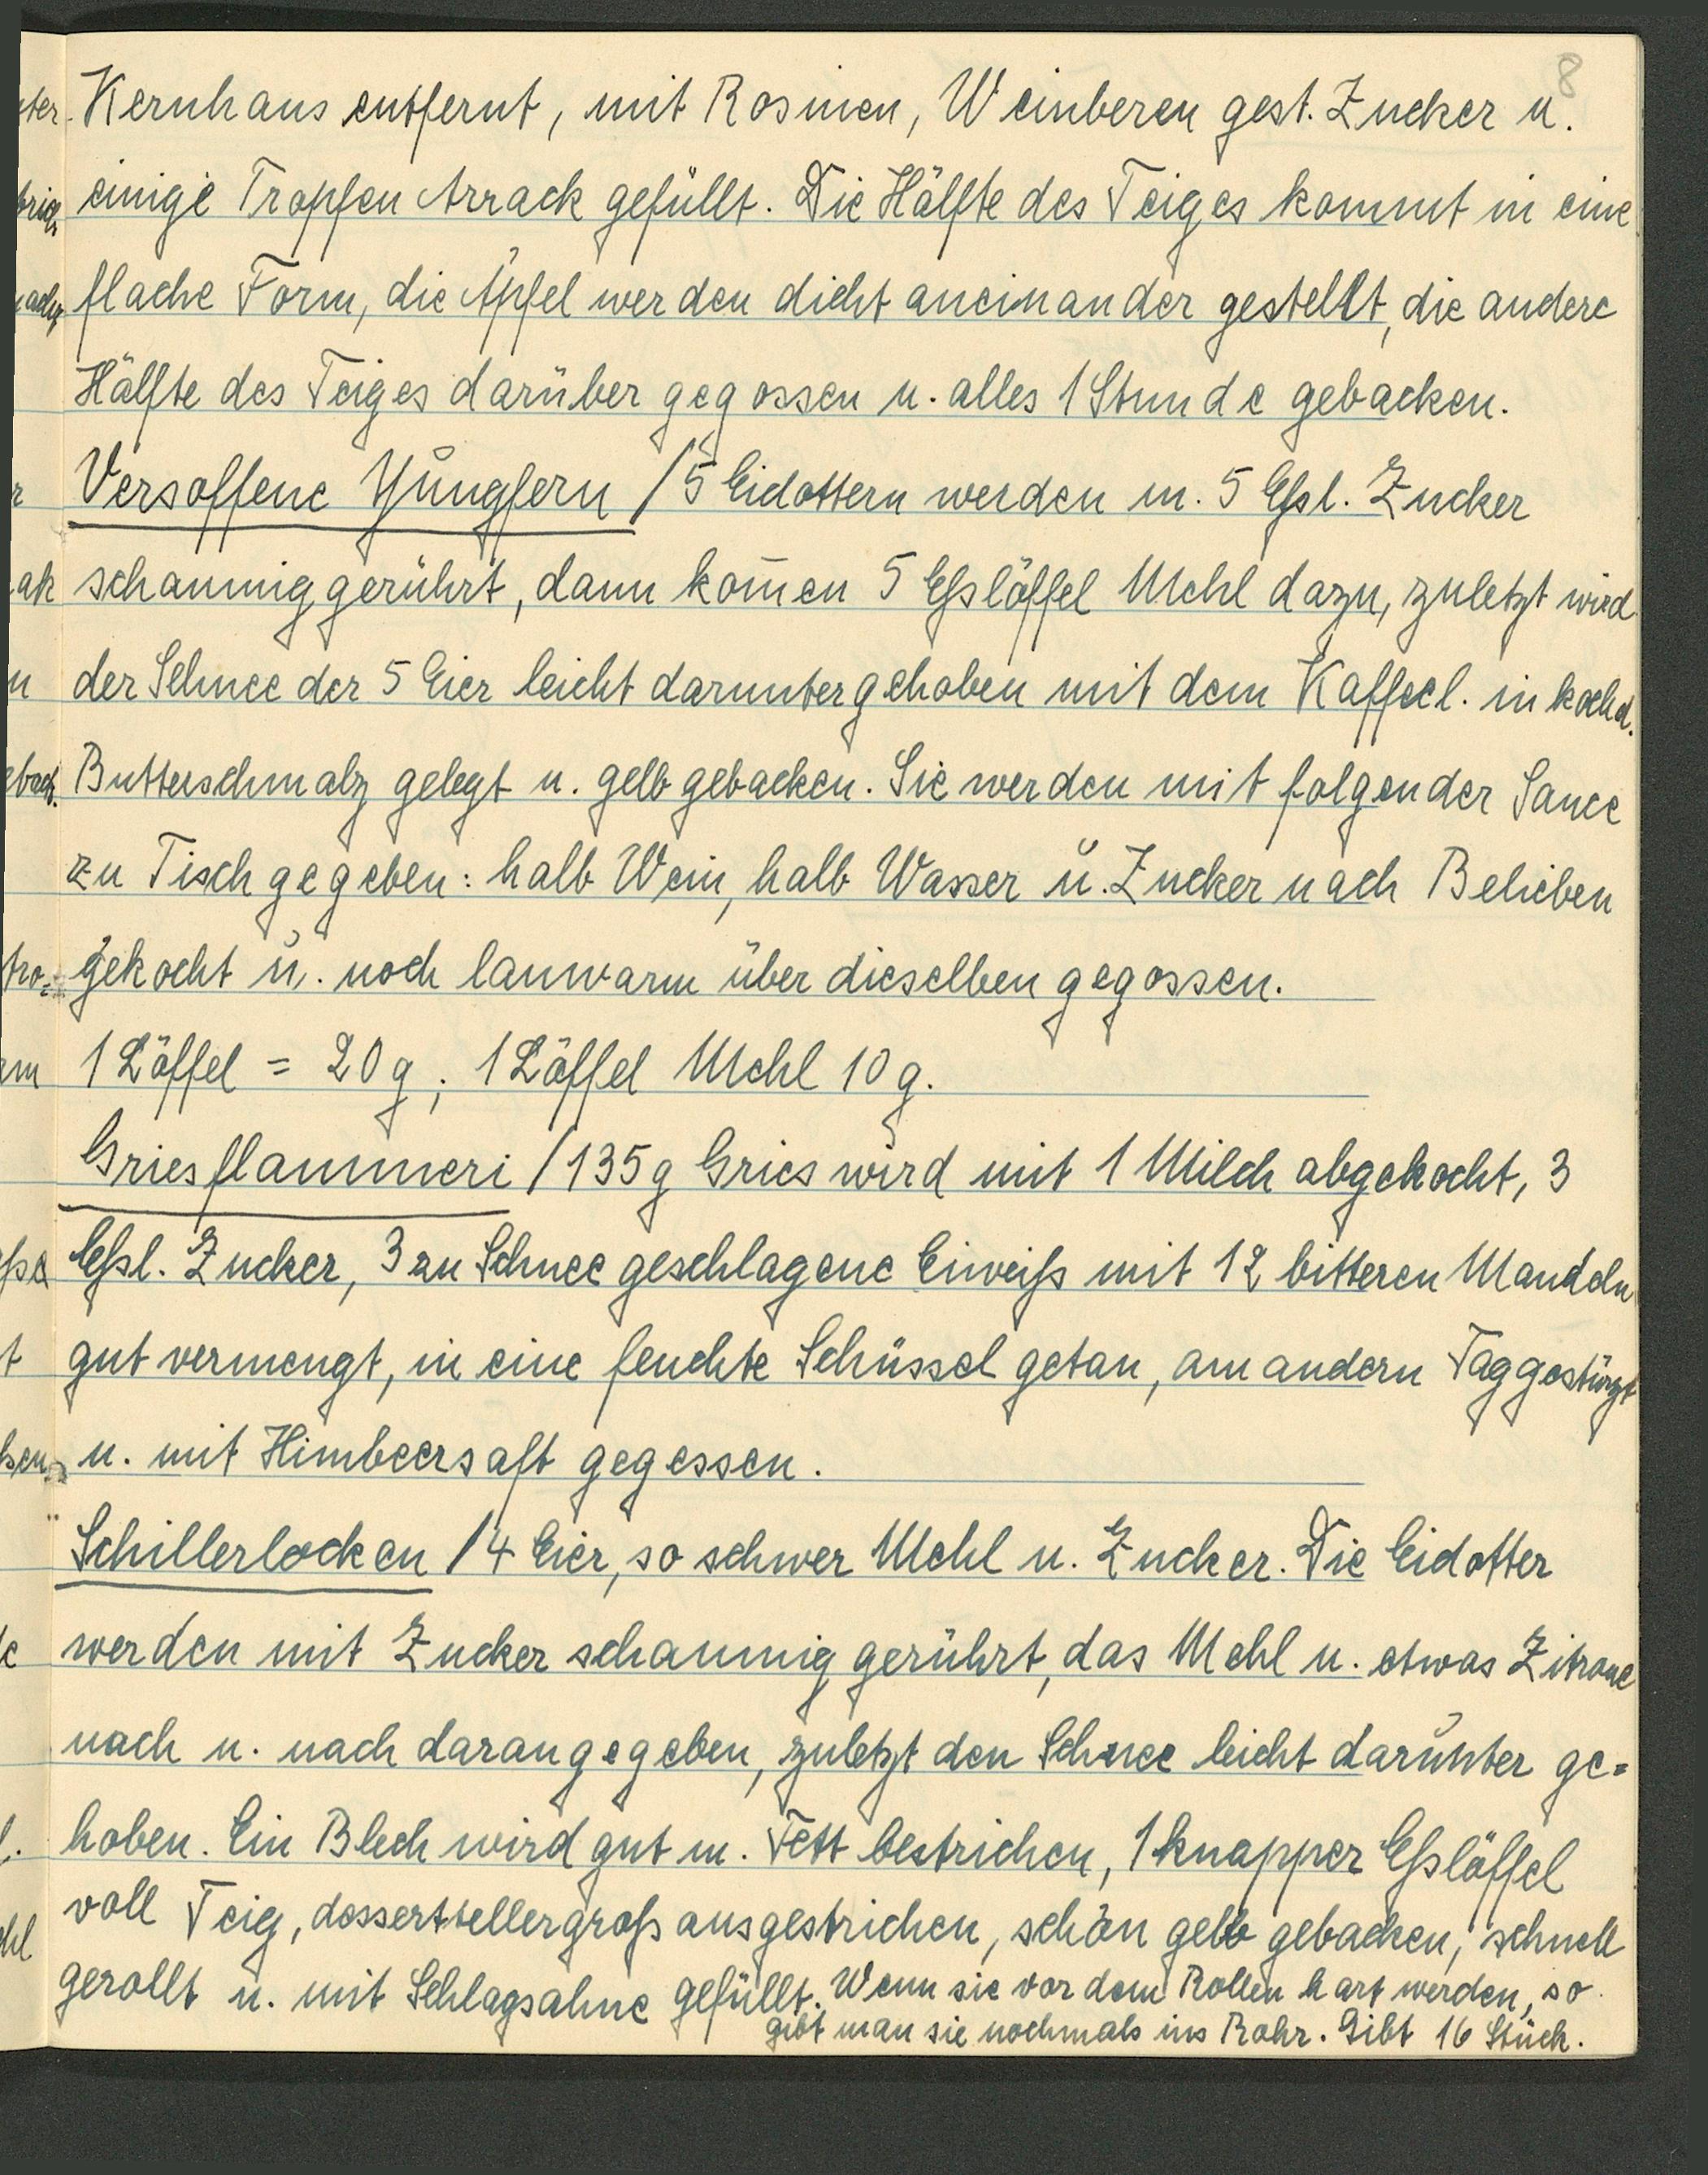 8
Kernhaus entfernt, mit Rosinen, Weinberen gest. Zucker u.
einige Tropfen Arrack gefüllt. Die Hälfte des Teiges kommt in eine
flache Form, die Äpfel werden dicht aneinander gestellt, die andere
Hälfte des Teiges darüber gegossen u. alles 1 Stunde gebacken.
Versoffene Yungfern / 5 Eidottern werden m. 5 Eßl. Zucker
schaumig gerührt, dann kom̄en 5 Eßlöffel Mehl dazu, zuletzt wird
der Schnee der 5 Eier leicht daruntergehoben mit dem Kaffeel. in kochd.
Butterschmalz gelegt u. gelb gebacken. Sie werden mit folgender Sauce
zu Tisch gegeben: halb Wein, halb Wasser u. Zucker nach Belieben
gekocht u. noch lauwarm über dieselben gegossen.
1 Löffel = 20 g, 1 Löffel Mehl 10 g.
Griesflammeri / 135 g Gries wird mit 1 Milch abgekocht, 3
Eßl. Zucker, 3 zu Schnee geschlagene Eiweiß mit 12 bitteren Mandeln
gut vermengt, in eine feuchte Schüssel getan, am andern Tag gestürzt
u. mit Himbeersaft gegessen.
Schillerlocken / 4 Eier, so schwer Mehl u. Zucker. Die Eidotter
werden mit Zucker schaumig gerührt, das Mehl u. etwas Zitrone
nach u. nach darangegeben, zuletzt den Schnee leicht darunter ge=
hoben. Ein Blech wird gut m. Fett bestrichen, 1 knapper Eßlöffel
voll Teig, desserttellergroß ausgestrichen, schön gelb gebacken, schnell
gerollt u. mit Schlagsahne gefüllt. Wenn sie vor dem Rollen hart werden, so
gibt man sie nochmals ins Rohr. Gibt 16 Stück.